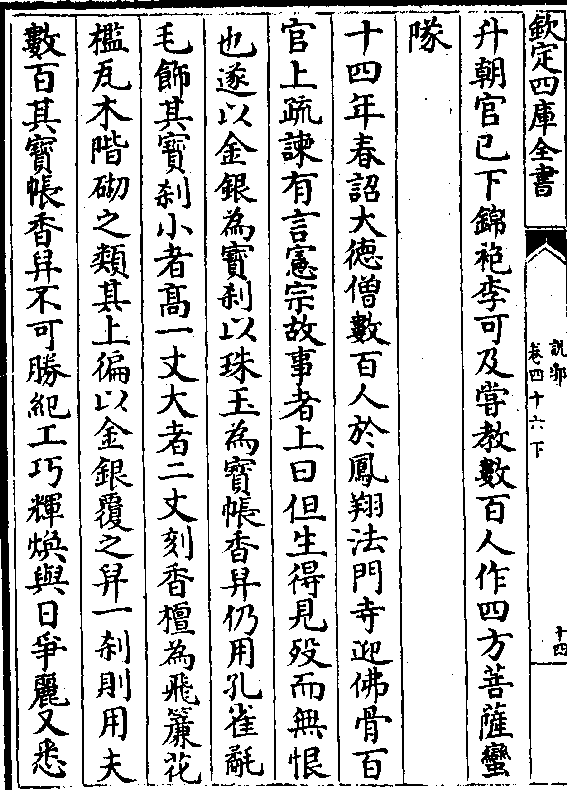 欽定四庫全書
說郛
卷四十六下
十四
升朝官已下錦袍李可及嘗教數百人作四方菩薩蠻
隊
十四年春詔大德僧數百人於鳳翔法門寺迎佛骨百
官上疏諫有言憲宗故事者上曰但生得見歿而無恨
也遂以金銀為寳刹以珠玉為寳帳香舁仍用孔雀氄
毛飾其寳刹小者髙一丈大者二丈刻香檀為飛簾花
檻瓦木階砌之類其上徧以金銀覆之舁一刹則用夫
數百其寳帳香舁不可勝紀工巧輝煥與日爭麗又悉